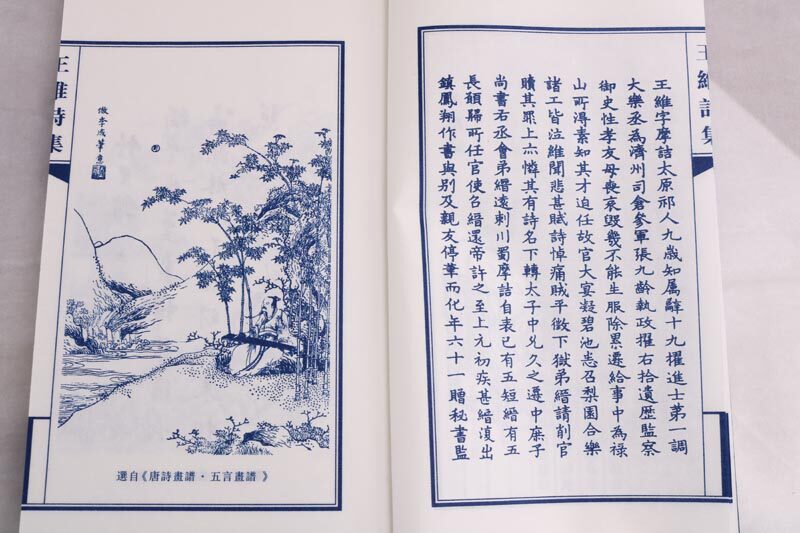 王維詩集
王維字摩詰太原祁人九歲知屬辭十九擢進士第一調
大樂丞為濟州司倉參軍張九齡執政擢右拾遺歷監察
御史性孝友母喪哀毀幾不能生服除累遷給事中為祿
山所得素知其才迫任故官大宴凝碧池悉召梨園合樂
諸工皆泣維聞悲甚賦詩悼痛賊平徵下獄弟縉請削官
贖其罪上亦憐其有詩名下轉太子中允久之遷中庶子
尚書右丞會弟縉遠刺川蜀摩詰自表已有五短縉有五
長願歸所任官使召縉還帝許之至上元初疾甚縉復出
鎮鳳翔作書與別及親友停筆而化年六十一贈秘書監
王維詩集
倣李成筆意
選自《唐詩畫譜·五言畫譜》